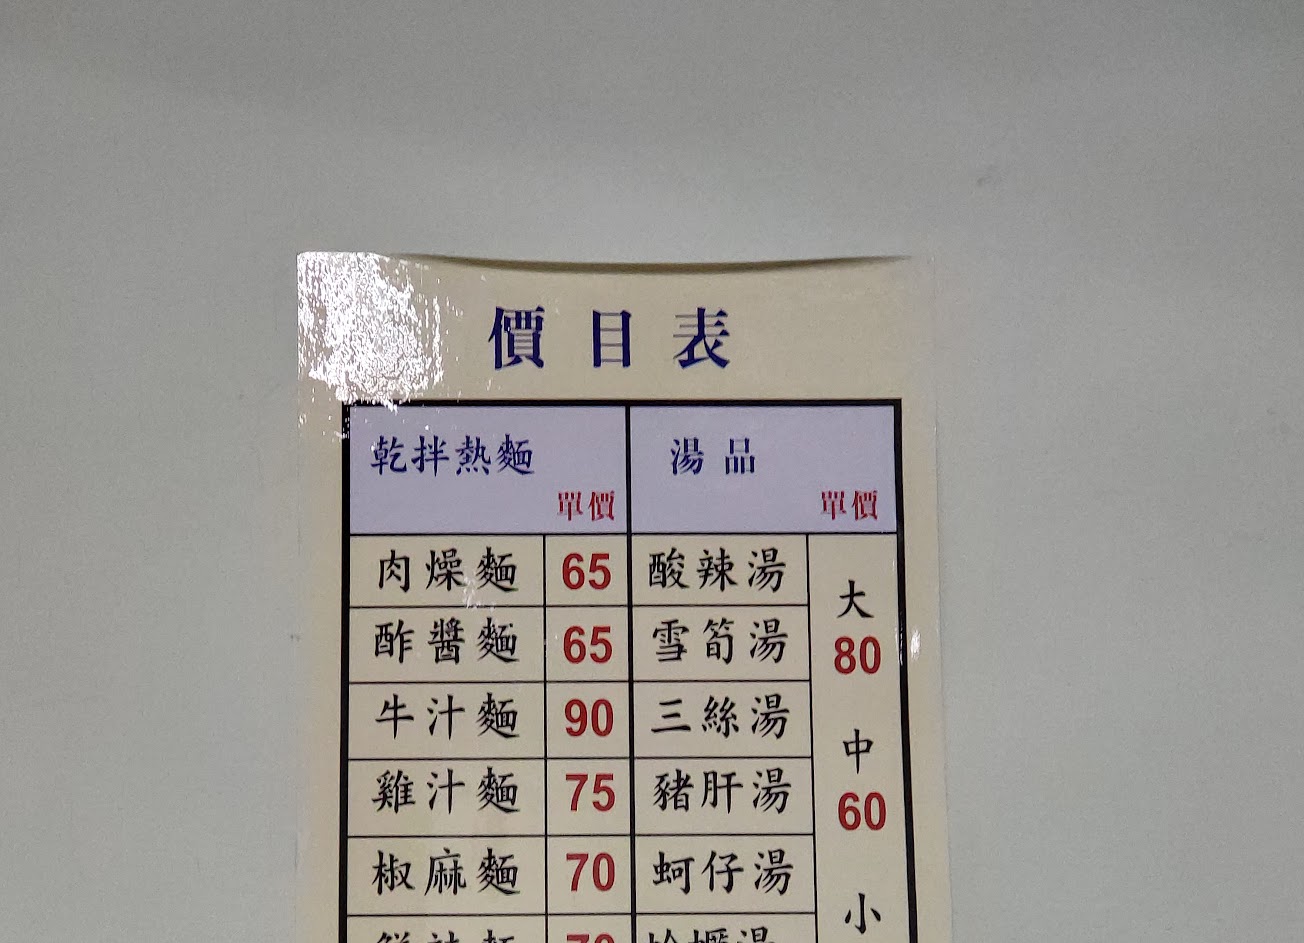 價目表
乾拌熱麵
單價
湯品
單價
肉燥麵 65 酸辣湯
大
酢醬麵 65 雪筍湯
80
牛汁麵 90 三絲湯
中
雞汁麵 75 豬肝湯
60
椒麻麵 70 蚵仔湯
小